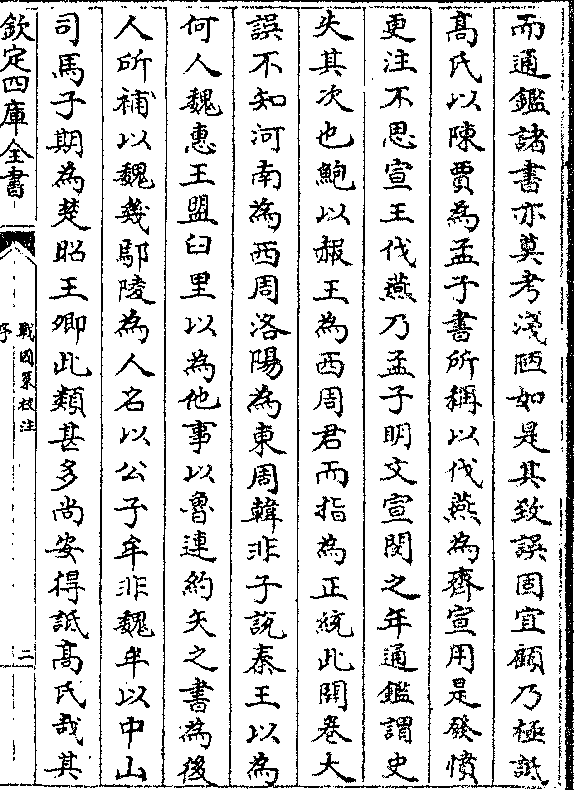 而通鑑諸書亦莫考淺陋如是其致誤固宜顧乃極詆
髙氏以陳賈為孟子書所稱以伐燕為齊宣用是發憤
更注不思宣王伐燕乃孟子明文宣閔之年通鑑謂史
失其次也鮑以赧王為西周君而指為正統此開卷大
誤不知河南為西周洛陽為東周韓非子說秦王以為
何人魏惠王盟臼里以為他事以魯連約矢之書為後
人所補以魏㡬鄢陵為人名以公子牟非魏牟以中山
司馬子期為楚昭王卿此類甚多尚安得詆髙氏哉其
欽定四庫全書
戰國策校注
序
二